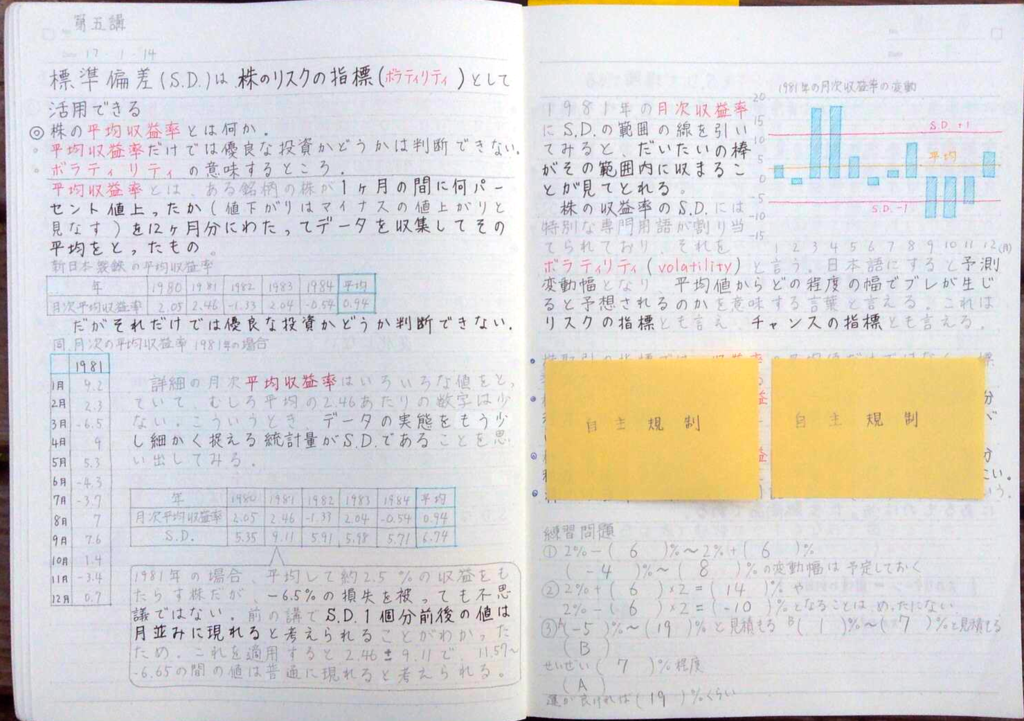 第五講
17 1 14
標準偏差(S.D.)は株のリスクの指標(ボラティリティ)として
活用できる
◎株の平均収益率とは何か.
平均収益率だけでは優良な投資かどうかは判断できない.
ボラティリティの意味するところ.
平均収益率とは、ある銘柄の株が1ヶ月の間に何パー
セント値上ったか(値下がりはマイナスの値上がりと
見なす)を12ヶ月分にわたってデータを収集してその
平均をとったもの。
新日本製鐵の平均収益率
年 1980 1981 1982 1983 1984 平均
月次平均収益率 2.05 2.46 -1.33 2.04 -0.54 0.94
だがそれだけでは優良な投資かどうか判断できない.
同 月次の平均収益率 1981年の場合
1981
1月 4.2
2月 2.3
3月 -6.5
4月 9
5月 5.3
6月 -4.3
7月 -3.7
8月 7
9月 7.6
10月 1.4
11月 -3.4
12月 0.7
詳細の月次平均収益率はいろいろな値をとっ
ていて、むしろ平均の2.46あたりの数字は少
ない.こういうとき、データの実態をもう少
し細かく捉える統計量がS.D.であることを思
い出してみる.
年 1980 1981 1982 1983 1984 平均
月次平均収益率 2.05 2.46 -1.33 2.04 -0.54 0.94
S.D. 5.35 9.11 5.91 5.98 5.71 6.74
1981年の場合、平均して約2.5%の収益をも
たらす株だが、-6.5%の損失を被っても不思
議ではない.前の講でS.D.1個分前後の値は
月並みに現れると考えられることがわかった
ため、これを適用すると2.46±9.11で、11.57~
-6.65の間の値は普通に現れると考えられる.
1981年の月次収益率の変動
20
15
10
5
0
-5
-10
-15
S.D.+1
平均
S.D.-1
1 2 3 4 5 6 7 8 9 10 11 12(月)
1981年の月次収益率
にS.D.の範囲の線を引い
てみると、だいたいの棒
がその範囲内に収まるこ
とが見てとれる。
株の収益率のS.D.には
特別な専門用語が割り当
てられており、それを
ボラティリティ(volatility)と言う.日本語にすると予測
変動幅となり、平均値からどの程度の幅でブレが生じ
ると予想されるのかを意味する言葉と言える.これは
リスクの指標とも言え、チャンスの指標とも言える.
自主規制
自主規制
練習問題
① 2%-( 6 )%~2%+( 6 )%
( -4 )%~( 8 )%の変動幅は予定しておく
② 2%+( 6 )×2=( 14 )%や
2%-( 6 )×2=( -10 )%となることはめったにない
③ A(-5)%~( 19 )%と見積る B( 1 )%~( 7 )%と見積る
( B )
せいぜい( 7 )%程度
( A )
運が良ければ( 19 )%くらい